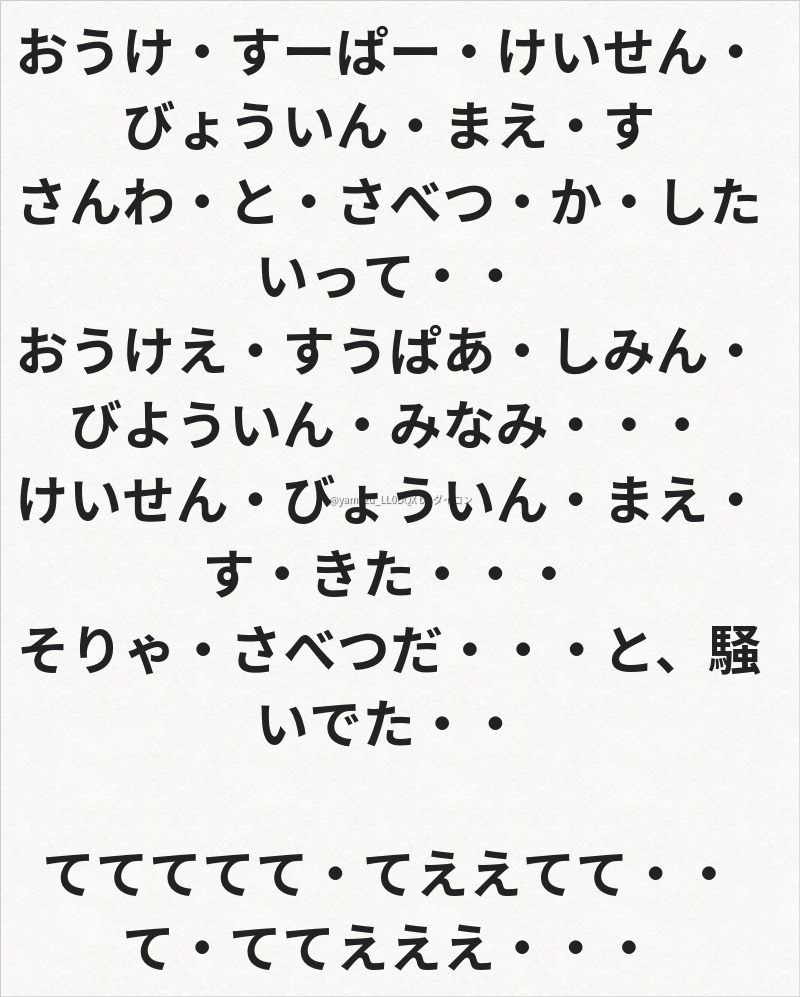 おうけ・すーぱー・けいせん・
びょういん・まえ・す
さんわ・と・さべつ・か・した
いって・・
おうけえ・すうぱあ・しみん・
びよういん・みなみ・・・
けいせん・びょういん・まえ・
す・きた・・・
そりゃ・さべつだ・・・と、騒
いでた・・
ててててて・てええてて・・
て・ててえええ・・・